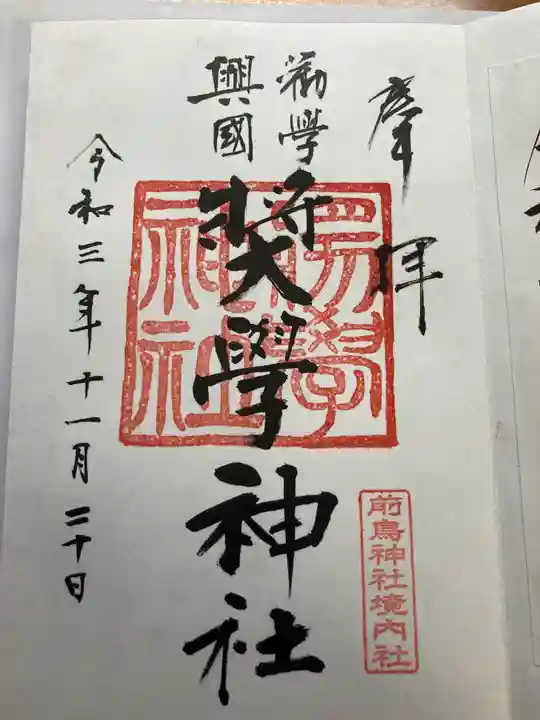 奉拝
勸學
興國
奬學神社
令和三年十一月二十日
前鳥神社境内社